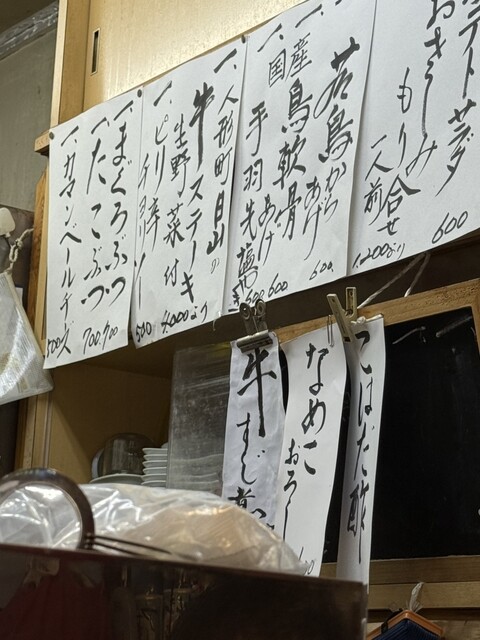 テトサラダ
600
おさしみ
もり合せ
一人前
1,200より
一、若鳥からあげ
600
一、国産鳥軟骨あげ
600
手羽先
600
一、人形町日山の
牛ステーキ
生野菜付
4000より
一、ピリ辛チョリソ
500
一、まぐろぶつ
700
一、たこぶつ
700
一、カマンベールチーズ
500
牛すじ煮
なめこおろし
こはだ酢